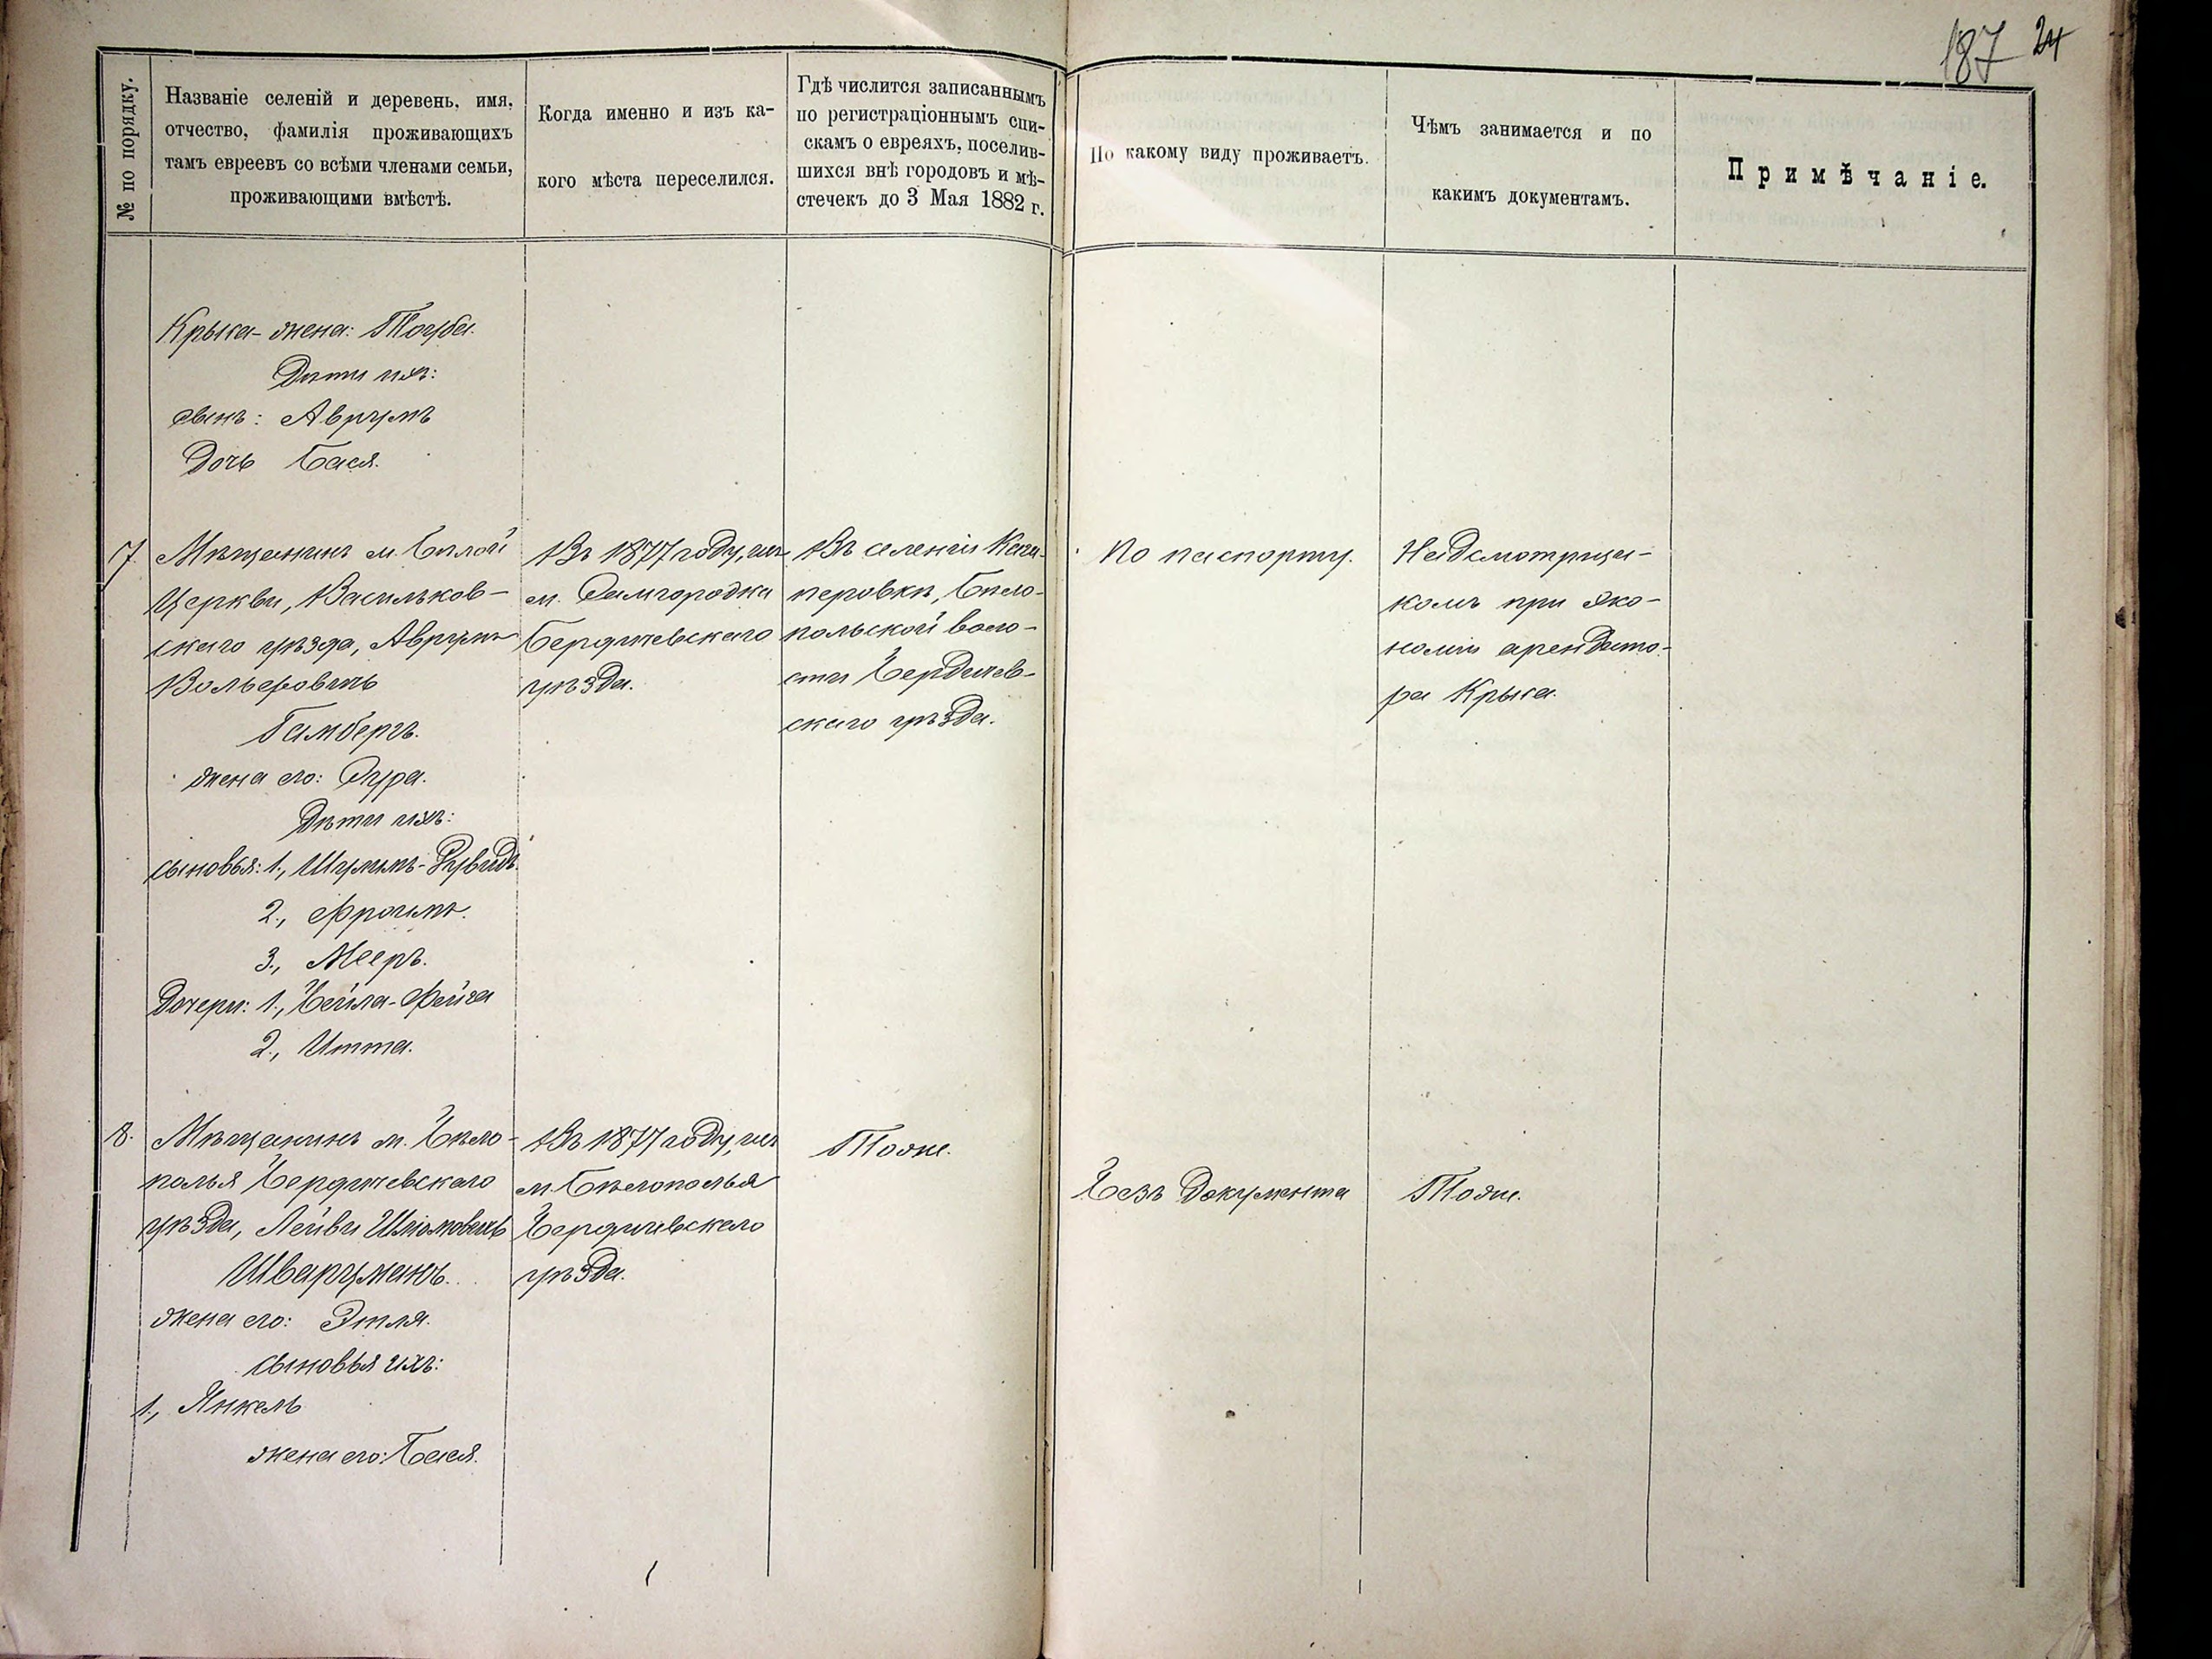 187 24
№ по порядку.
Названіе селеній и деревень, имя,
отчество, фамилія проживающихъ
тамъ евреевъ со всѣми членами семьи,
проживающими вмѣстѣ.
Когда именно и изъ ка-
кого мѣста переселился.
Гдѣ числится записаннымъ
по регистраціоннымъ спи-
скамъ о евреяхъ, поселив-
шихся внѣ городовъ и мѣ-
стечекъ до 3 Мая 1882 г.
По какому виду проживаетъ.
Чѣмъ занимается и по
какимъ документамъ.
Примѣчаніе.
Крыка - жена: Тоуба.
Дѣти ихъ:
сынъ: Аврумъ
Дочь Бася.
7.
Мѣщанинъ м. Бѣлой
Церкви, Васильков-
скаго уѣзда, Аврумъ
Вольфовичъ
Гамбергъ.
жена его: Сура.
Дѣти ихъ:
сыновья: 1., Шулимъ-Рувидъ.
2., Фроимъ.
3., Мееръ.
Дочери: 1., Бейла-Фейга
2., Итта.
Въ 1877 году, изъ
м. Самгородка
Бердичевскаго
уѣзда.
Въ селеніи Каш-
перовкѣ, Бѣло-
польской воло-
сти Бердичев-
скаго уѣзда.
По паспорту.
Надсмотрщи-
комъ при эко-
номіи арендато-
ра Крыка.
8.
Мѣщанинъ м. Бѣло-
полья Бердичевскаго
уѣзда, Лейви Шліомовичъ
Шварцманъ.
жена его: Этля.
сыновья ихъ:
1., Янкель
жена его: Бася.
Въ 1877 году, изъ
м. Бѣлополья
Бердичевскаго
уѣзда.
Тоже.
Безъ документа
Тоже.